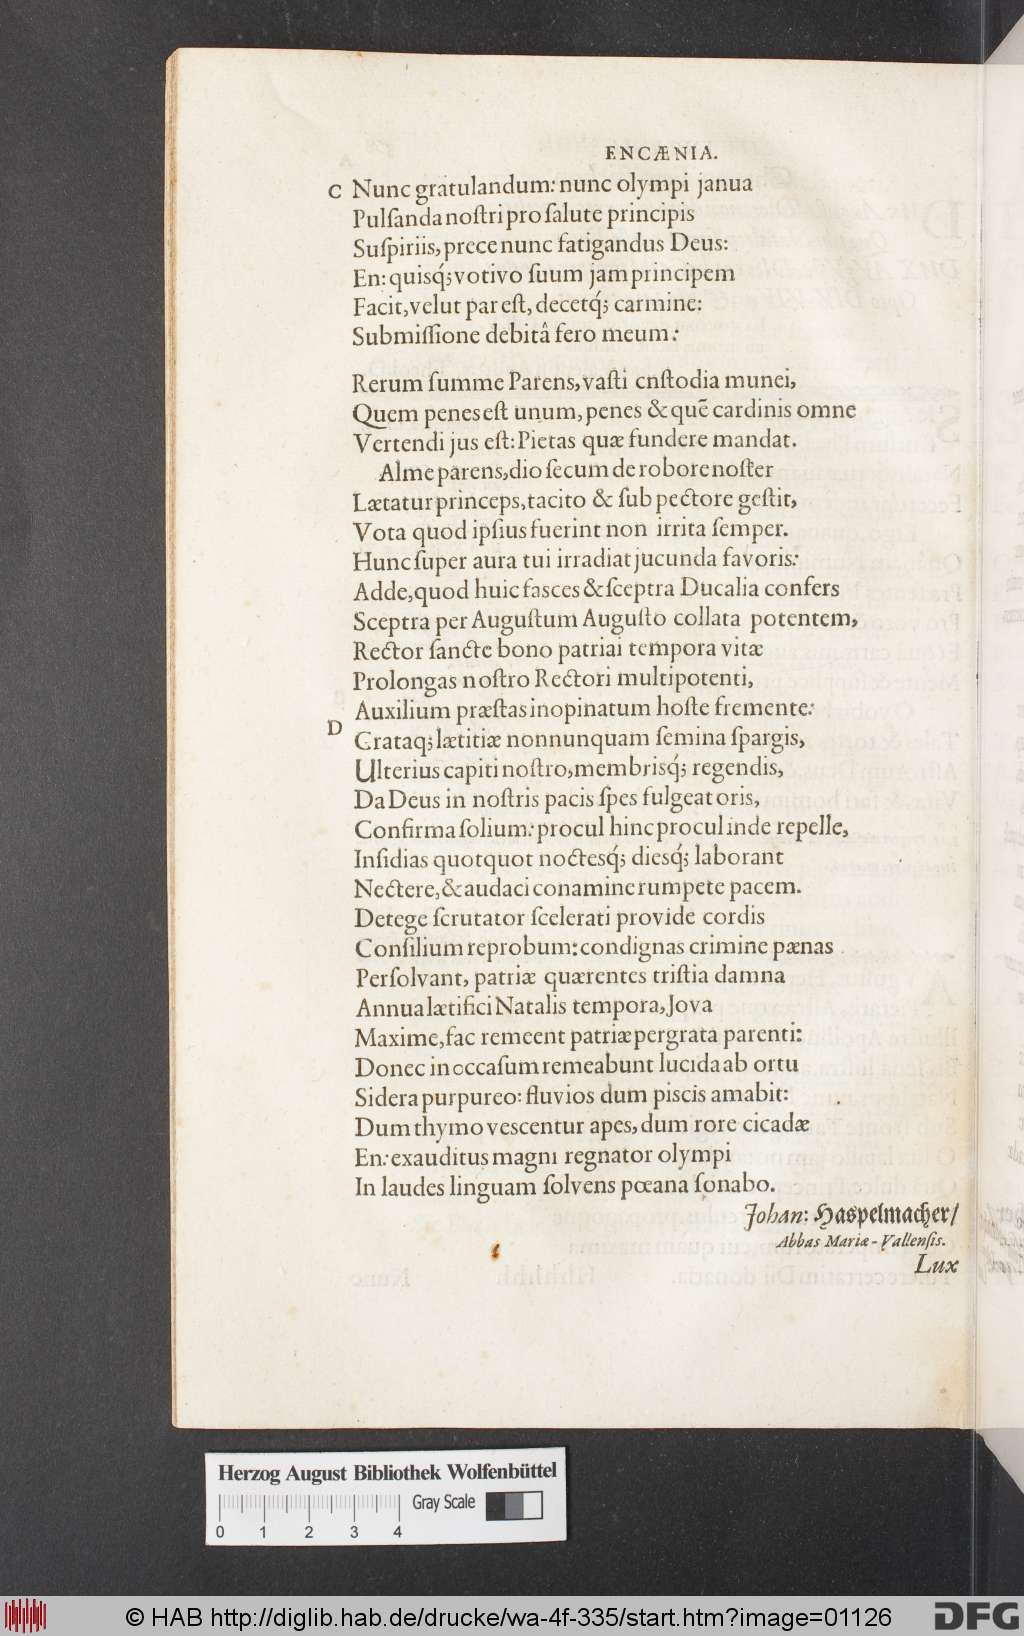 ENCÆNIA.
C Nunc gratulandum: nunc olympi janua
Pulſanda noſtri pro ſalute principis
Suſpiriis, prece nunc fatigandus Deus:
En: quisq́; votivo ſuum jam principem
Facit, velut par eſt, decetq́; carmine:
Submiſſione debitâ fero meum:
Rerum ſumme Parens, vaſti cnſtodia munei,
Quem penes eſt unum, penes & quē cardinis omne
Vertendi jus eſt: Pietas quæ fundere mandat.
Alme parens, dio ſecum de robore noſter
Lætatur princeps, tacito & ſub pectore geſtit,
Vota quod ipſius fuerint non irrita ſemper.
Hunc ſuper aura tui irradiat jucunda favoris:
Adde, quod huic faſces & ſceptra Ducalia confers
Sceptra per Auguſtum Auguſto collata potentem,
Rector ſancte bono patriai tempora vitæ
Prolongas noſtro Rectori multipotenti,
Auxilium præſtas inopinatum hoſte fremente:
D Grataq; lætitiæ nonnunquam ſemina ſpargis,
Ulterius capiti noſtro, membrisq́; regendis,
Da Deus in noſtris pacis ſpes fulgeat oris,
Confirma ſolium: procul hinc procul inde repelle,
Inſidias quotquot noctesq́; diesq́; laborant
Nectere, & audaci conamine rumpete pacem.
Detege ſcrutator ſcelerati provide cordis
Conſilium reprobum: condignas crimine pænas
Perſolvant, patriæ quærentes triſtia damna
Annua lætifici Natalis tempora, Jova
Maxime, fac remeent patriæ pergrata parenti:
Donec in occaſum remeabunt lucida ab ortu
Sidera purpureo: fluvios dum piscis amabit:
Dum thymo vescentur apes, dum rore cicadæ
En: exauditus magni regnator olympi
In laudes linguam ſolvens pœana ſonabo.
Johan: Haspelmacher/
Abbas Mariæ-Vallenſis.
Lux
Herzog August Bibliothek Wolfenbüttel
Gray Scale
0 1 2 3 4
© HAB http://diglib.hab.de/drucke/wa-4f-335/start.htm?image=01126
DFG